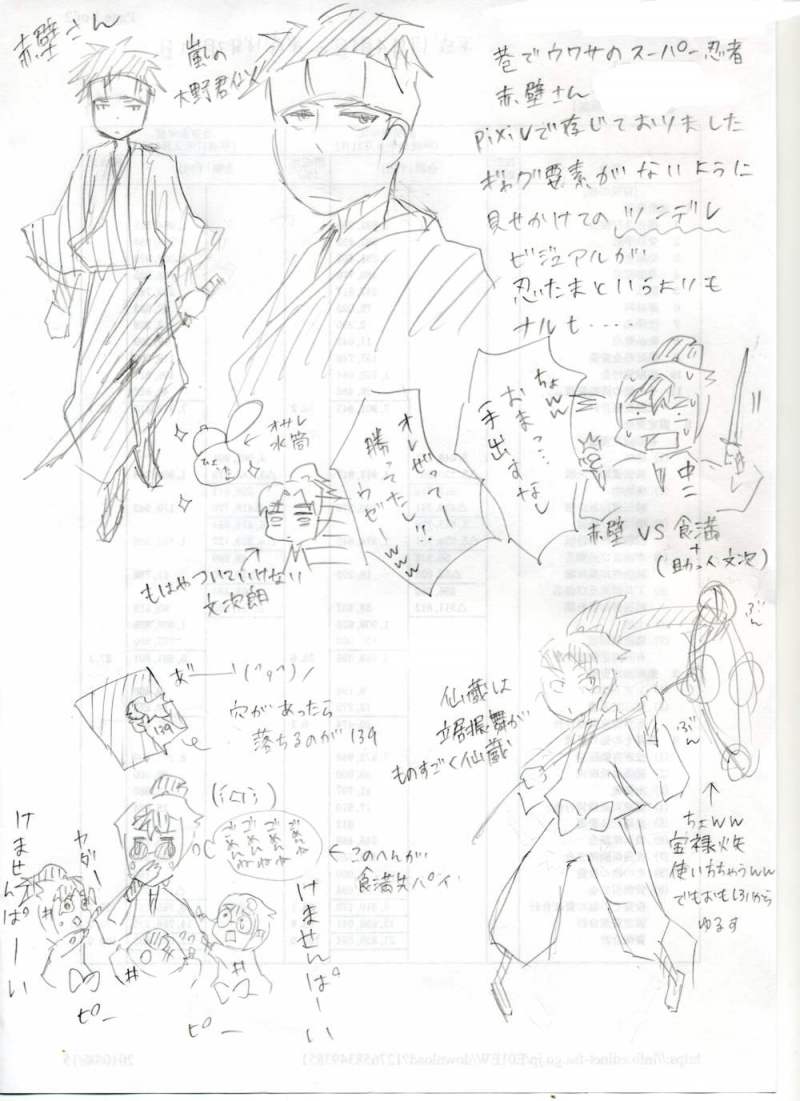 赤壁さん
嵐の
大野君似〆
巷でウワサのスーパー忍者
赤壁さん
pixivで存じておりました
ギャグ要素がないように
見せかけての ツンデレ
ビジュアルが
忍たまというよりも
ナルも・・・・
ちょww
おまっ…
手出すなし
オレぜってー!!
勝ってたし
ウゼーwww
中二
赤壁 VS 食満
+
(助っ人 文次)
ひょうたん
←オサレ
水筒
もはやついていけない
文次朗
あ゛ーーー'
穴があったら
落ちるのが139
139
仙蔵は
立居振舞が
ものすごく仙蔵
ぶん
ぶん
ちょww
宝禄火矢
使い方ちがうww
でもおもしろいから
ゆるす
ごめんね
ごめんね
ごめんね
ごめんね
←このへんが
食満先パイ
けませんぱーい
ヤダー
けませんぱーい
ピー
ピー